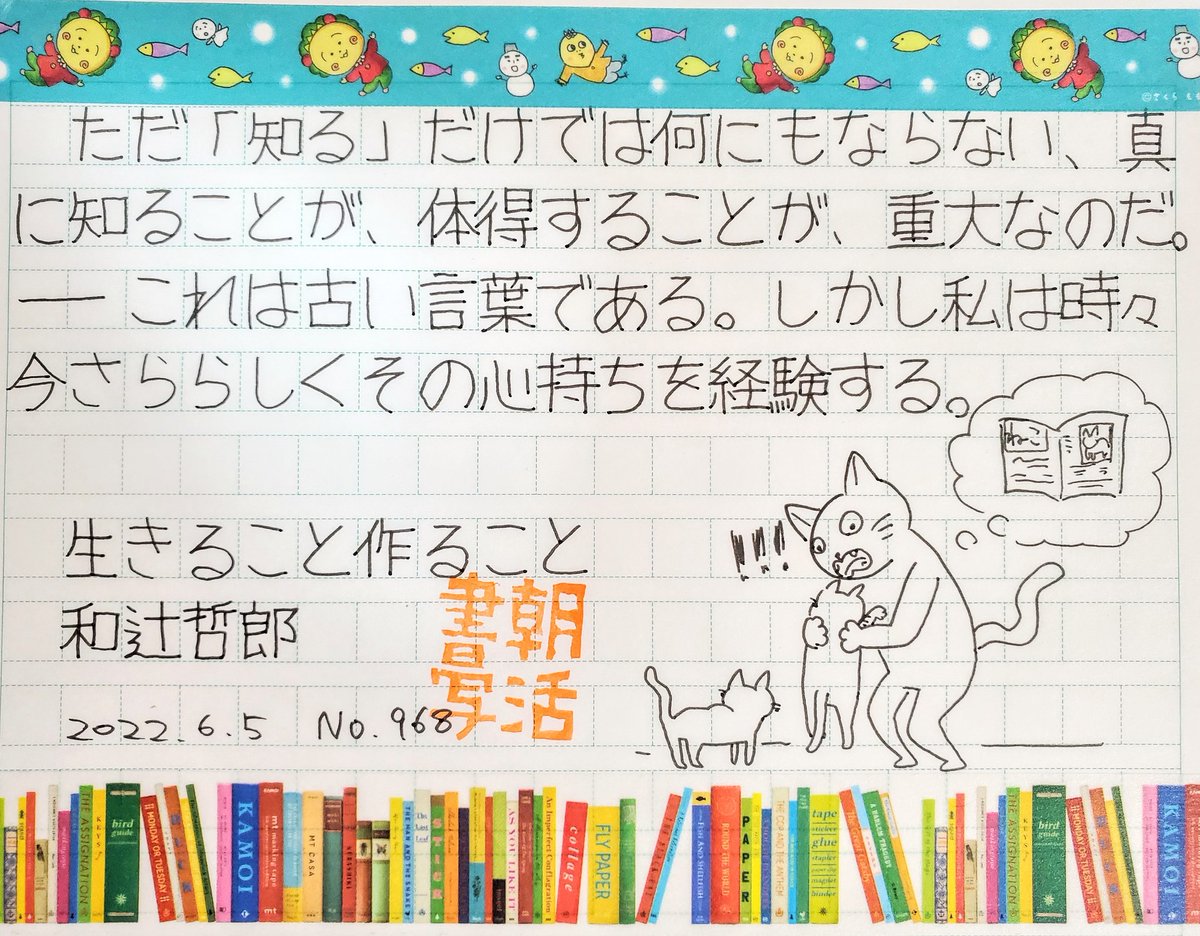 ©さくら もも
ただ「知る」だけでは何にもならない、真
に知ることが、体得することが、重大なのだ。
── これは古い言葉である。しかし私は時々
今さららしくその心持ちを経験する。
ねこ
!!!
生きること作ること
和辻哲郎
朝活
書写
2022.6.5 No.968
THE ASSIGNATION
KEYS
bird guide
MONDAY OR TUESDAY
KAMOI
mt
mt masking tape
MT CASA
THE MAN AND THE SNAKE
The Last Leaf
STICK
AS YOU LIKE IT
An Imperfect Conflagration
collage
FLY PAPER
PAPER
THE COP AND THE ANTHEM
tape
sticker
glue
stapler
paper clip
magnet
binder
THE ASSIGNATION
KEYS
bird guide
MONDAY OR TUESDAY
KAMOI